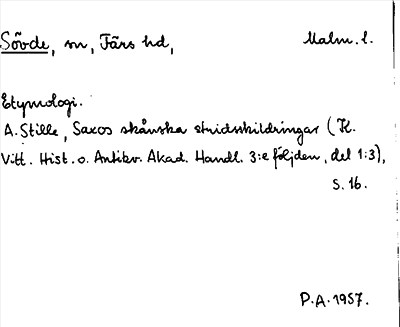 Sövde, sn, Färs hd, Malm. l.
Etymologi.
A. Stille, Saxos skånska stridsskildringar (K.
Vitt. Hist. o. Antikv. Akad. Handl. 3:e följden, del 1:3),
s. 16.
P.A. 1957.